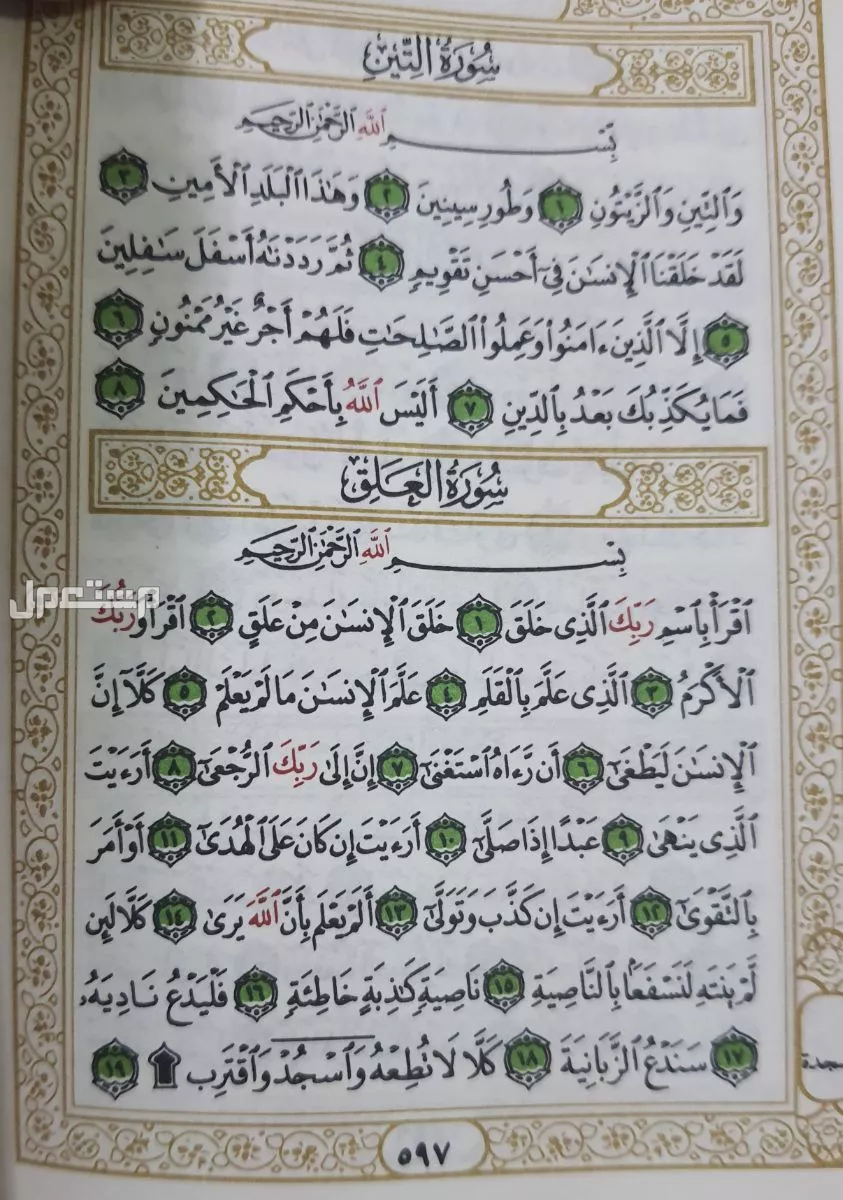 سُورَةُ التِّينِ
بِسْمِ ٱللَّهِ ٱلرَّحْمَٰنِ ٱلرَّحِيمِ
وَٱلتِّينِ وَٱلزَّيْتُونِ ١ وَطُورِ سِينِينَ ٢ وَهَٰذَا ٱلْبَلَدِ ٱلْأَمِينِ ٣
لَقَدْ خَلَقْنَا ٱلْإِنسَٰنَ فِىٓ أَحْسَنِ تَقْوِيمٍ ٤ ثُمَّ رَدَدْنَٰهُ أَسْفَلَ سَٰفِلِينَ
٥ إِلَّا ٱلَّذِينَ ءَامَنُوا۟ وَعَمِلُوا۟ ٱلصَّٰلِحَٰتِ فَلَهُمْ أَجْرٌ غَيْرُ مَمْنُونٍ ٦
فَمَا يُكَذِّبُكَ بَعْدُ بِٱلدِّينِ ٧ أَلَيْسَ ٱللَّهُ بِأَحْكَمِ ٱلْحَٰكِمِينَ ٨
سُورَةُ العَلَقِ
بِسْمِ ٱللَّهِ ٱلرَّحْمَٰنِ ٱلرَّحِيمِ
ٱقْرَأْ بِٱسْمِ رَبِّكَ ٱلَّذِى خَلَقَ ١ خَلَقَ ٱلْإِنسَٰنَ مِنْ عَلَقٍ ٢ ٱقْرَأْ وَرَبُّكَ
ٱلْأَكْرَمُ ٣ ٱلَّذِى عَلَّمَ بِٱلْقَلَمِ ٤ عَلَّمَ ٱلْإِنسَٰنَ مَا لَمْ يَعْلَمْ ٥ كَلَّآ إِنَّ
ٱلْإِنسَٰنَ لَيَطْغَىٰٓ ٦ أَن رَّءَاهُ ٱسْتَغْنَىٰٓ ٧ إِنَّ إِلَىٰ رَبِّكَ ٱلرُّجْعَىٰٓ ٨ أَرَءَيْتَ
ٱلَّذِى يَنْهَىٰ ٩ عَبْدًا إِذَا صَلَّىٰٓ ١٠ أَرَءَيْتَ إِن كَانَ عَلَى ٱلْهُدَىٰٓ ١١ أَوْ أَمَرَ
بِٱلتَّقْوَىٰٓ ١٢ أَرَءَيْتَ إِن كَذَّبَ وَتَوَلَّىٰٓ ١٣ أَلَمْ يَعْلَم بِأَنَّ ٱللَّهَ يَرَىٰ ١٤ كَلَّا لَئِن
لَّمْ يَنتَهِ لَنَسْفَعًۢا بِٱلنَّاصِيَةِ ١٥ نَاصِيَةٍ كَٰذِبَةٍ خَاطِئَةٍ ١٦ فَلْيَدْعُ نَادِيَهُۥ
١٧ سَنَدْعُ ٱلزَّبَانِيَةَ ١٨ كَلَّا لَا تُطِعْهُ وَٱسْجُدْ وَٱقْتَرِب ۩ ١٩
سجدة
٥٩٧
مستعمل